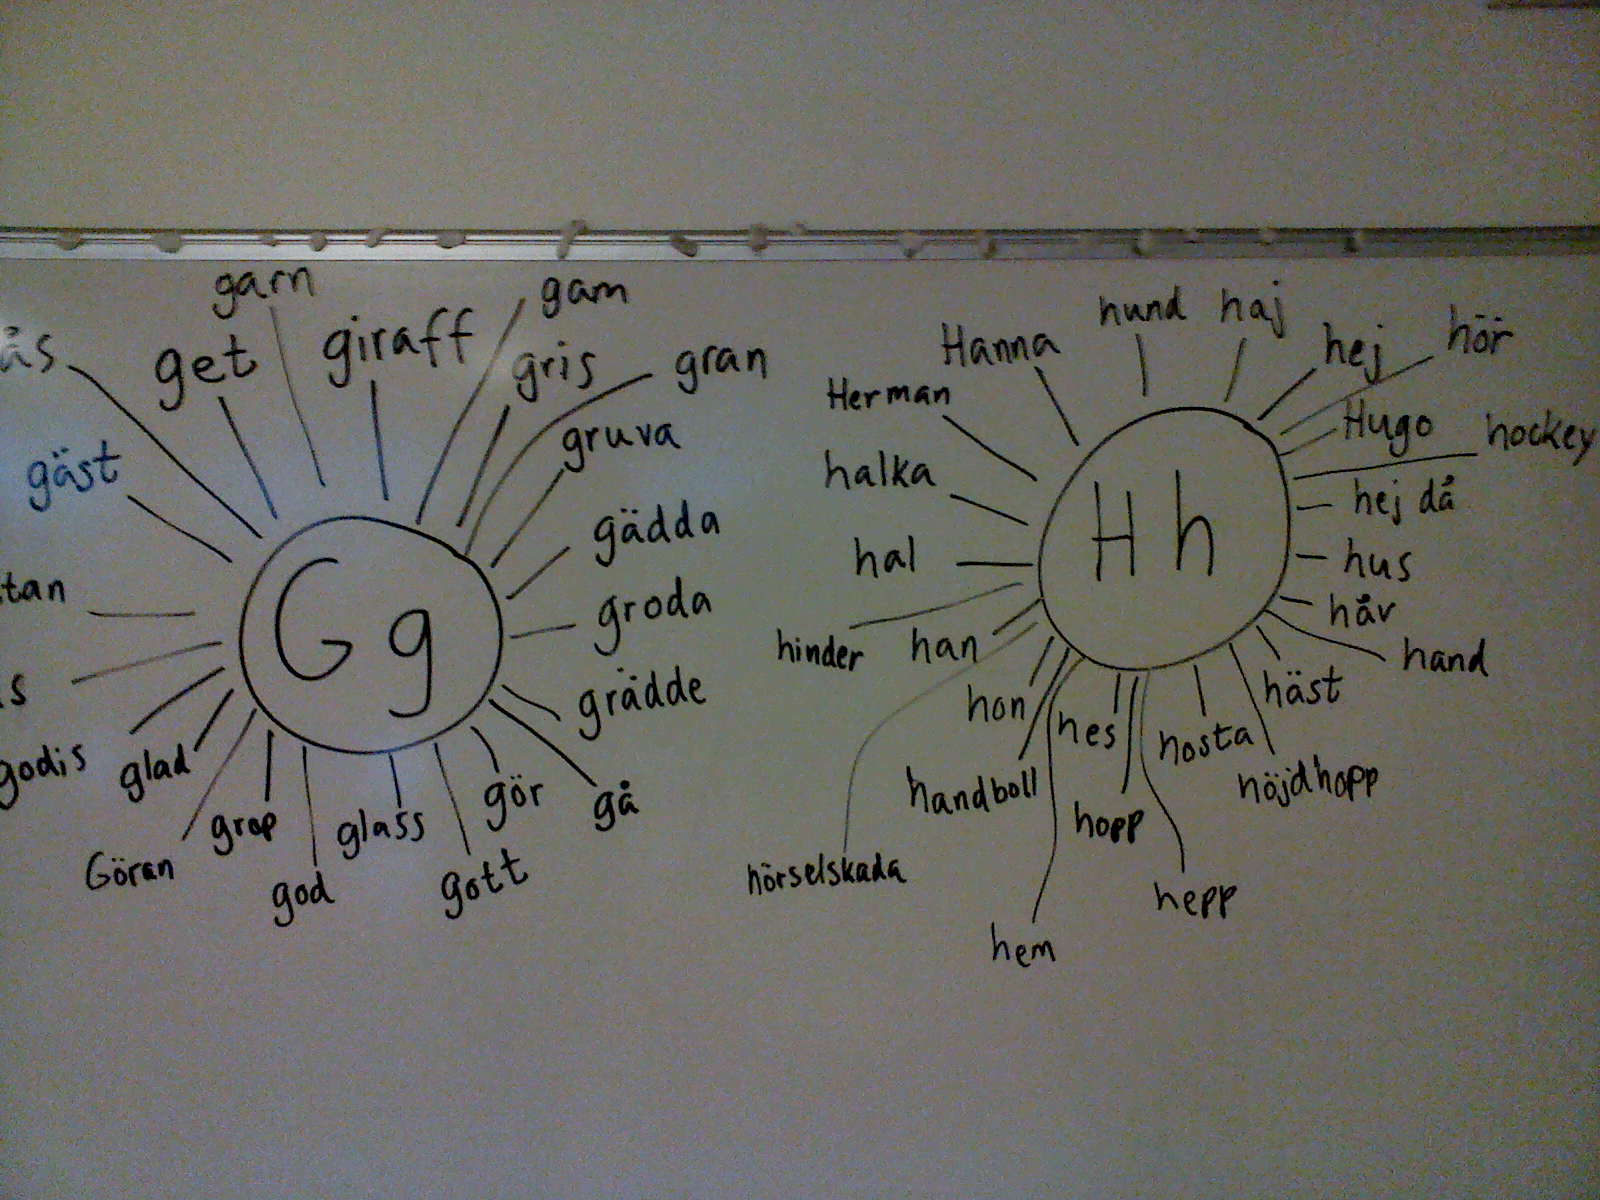 garn
gam
giraff
get
gris
gran
gruva
gäst
gädda
groda
grädde
godis
glad
gör
gå
grop
glass
Göran
god
gott
G g
hund
haj
Hanna
hej
hör
Herman
Hugo
hockey
halka
hej då
hal
hus
håv
hinder
han
hand
hon
häst
hes
hosta
handboll
höjdhopp
hopp
hörselskada
hepp
hem
H h